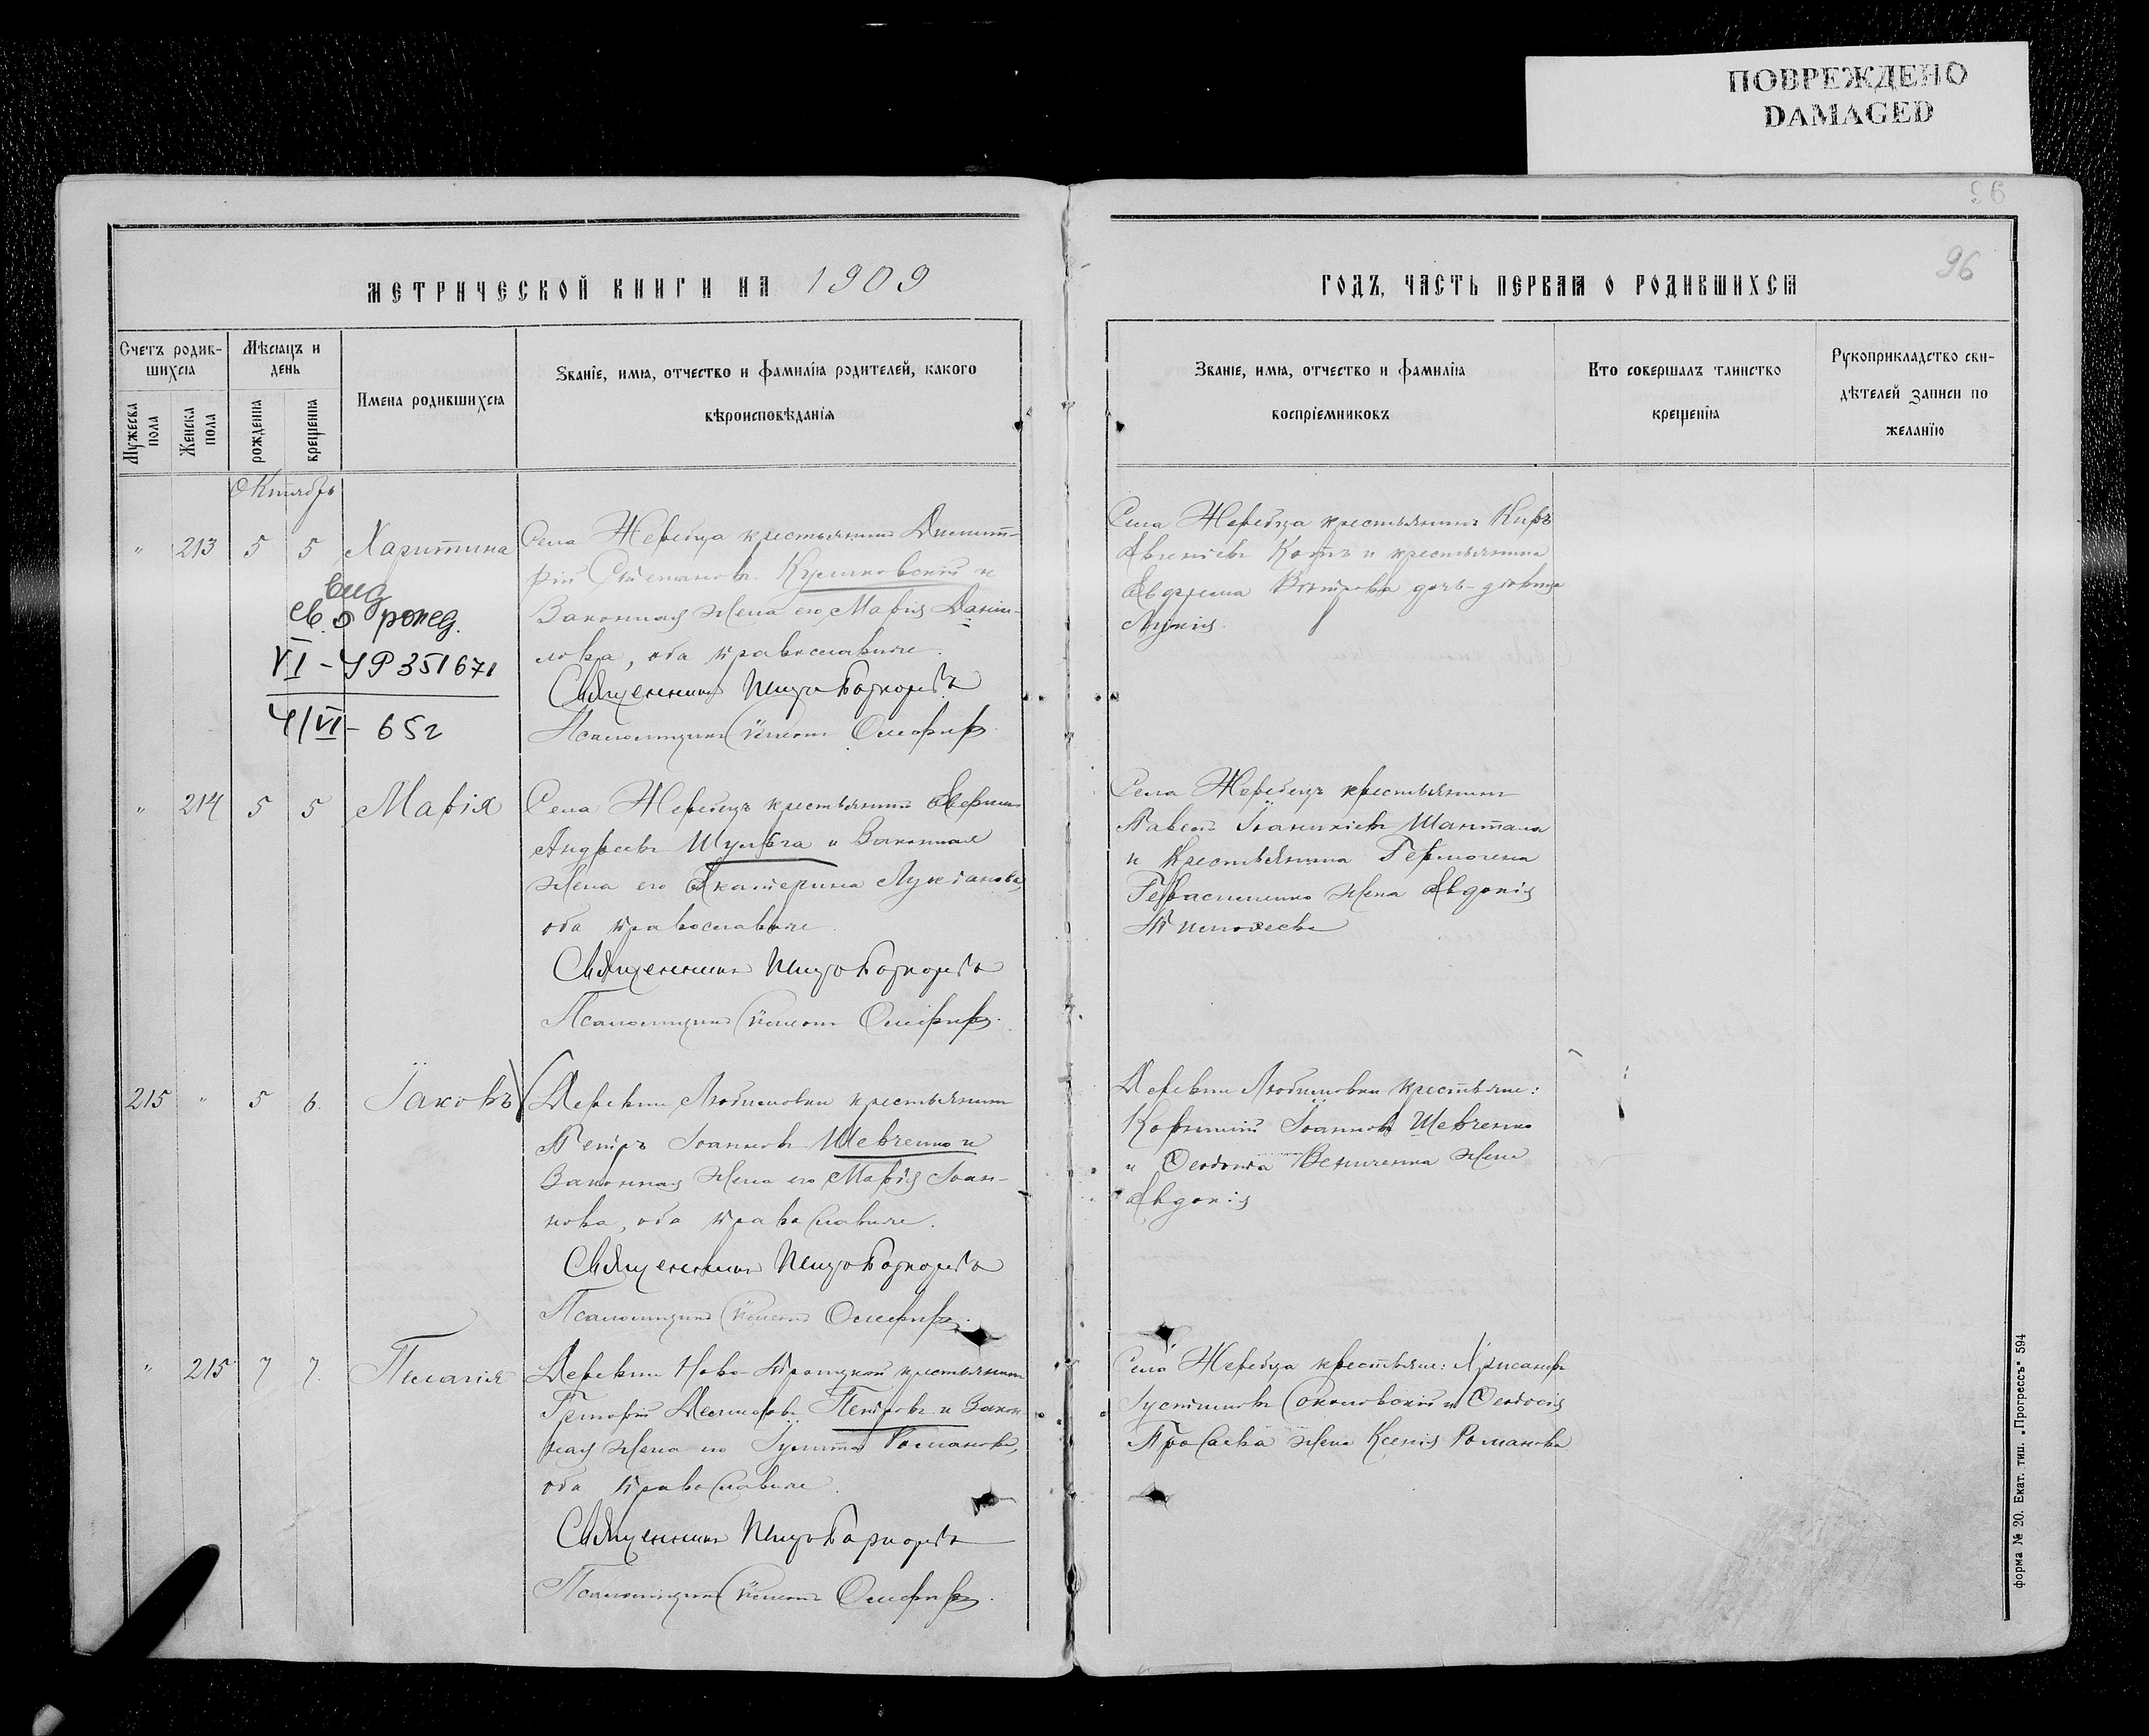 ПОВРЕЖДЕНО
DAMAGED
96
96
МЕТРИЧЕСКОЙ КНИГИ НА 1909
ГОДЪ, ЧАСТЬ ПЕРВАЯ О РОДИВШИХСЯ
Счетъ родив-
шихся
Мужеска пола
Женска пола
Мѣсяцъ и
день
рожденія
крещенія
Имена родившихся
Званіе, имя, отчество и фамилія родителей, какого
вѣроисповѣданія
Званіе, имя, отчество и фамилія
воспріемниковъ
Кто совершалъ таинство
крещенія
Рукоприкладство сви-
дѣтелей записи по
желанію
Октябрь
" 213 5 5 Харитина
Села Жеребца крестьянинъ Димит-
рій Стефановъ Куликовскій и
Законная жена его Марія Даніи-
лова, оба православные.
Священникъ
Псаломщикъ
выд
св. о рожд.
VI-УР 351671
4/VI-65г
Села Жеребца крестьянинъ Киръ
Евгеніевъ Котъ и крестьянина
дочь-дѣвица
" 214 5 5 Марія
Села Жеребецъ крестьянинъ
Андреевъ Шульга и Законная
жена его Екатерина Лукіанова,
оба православные
Священникъ
Псаломщикъ
Села Жеребецъ крестьянинъ
Павелъ Іоанникіевъ Шаптала
и Крестьянина Гермогена
Герасименко жена Евдокія
Тимофеева
215 " 5 6 Іаковъ
Деревни Любимовки крестьянинъ
Петръ Іоанновъ Шевченко и
Законная жена его Марія Іоан-
нова, оба православные.
Священникъ
Псаломщикъ
Деревни Любимовки крестьяне:
Корнилій Іоанновъ Шевченко
и жена
Евдокія
" 215 7 7 Пелагія
Деревни Ново-Троицкой крестьянинъ
Григорій Петровъ и Закон
ная жена его Іулитта Романова,
оба православные.
Священникъ
Псаломщикъ
Села Жеребца крестьяне: Хрисанфъ
Іустиновъ Соколовскій и Ѳеодосія
жена Ксенія Романова
форма № 20. Екат. тип. „Прогрессъ" 594